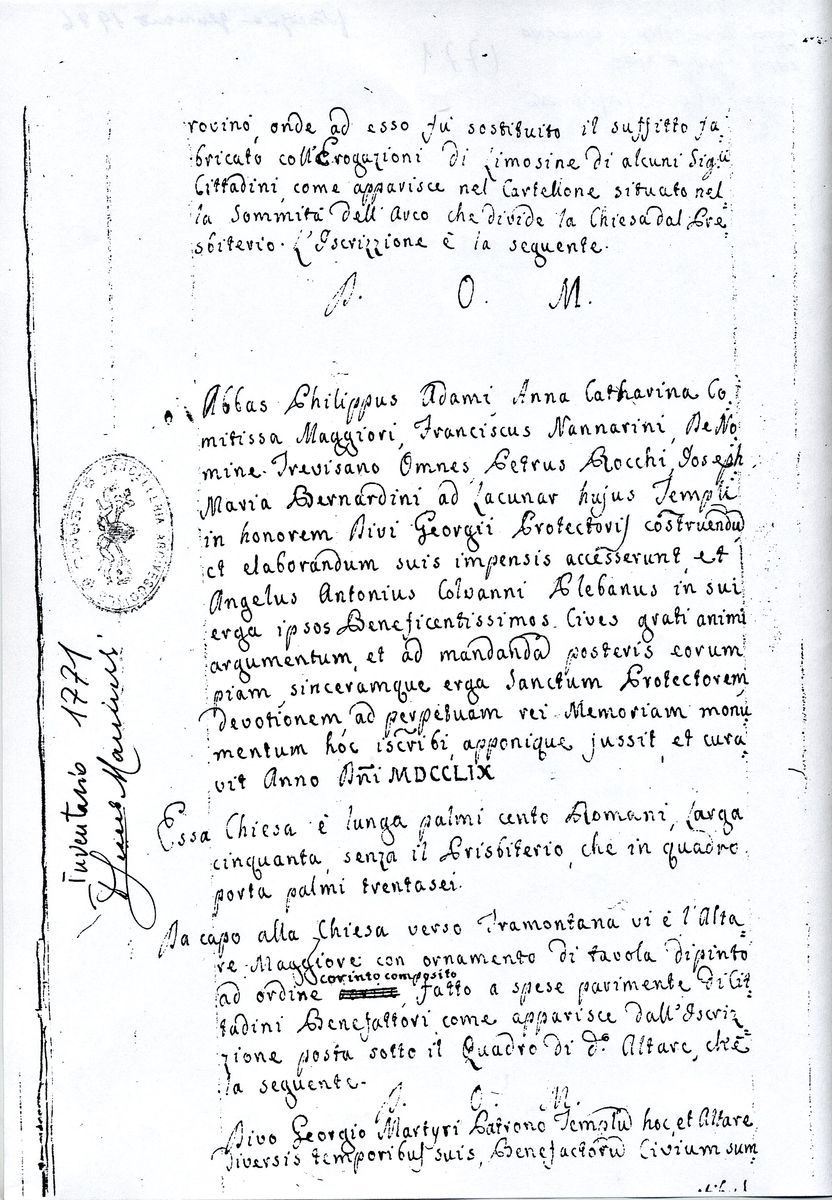 rovinò, onde ad esso fù sostituito il suffitto fa=
bricato coll'Erogazioni di Limosine di alcuni Sigri
Cittadini, come apparisce nel Cartellone situato nel
la Sommità dell'Arco che divide la Chiesa dal Pre=
sbiterio. L'Iscrizzione è la seguente.
D. O. M.
Abbas Philippus Adami, Anna Catharina Co=
mitissa Maggiori, Franciscus Nannarini, De No=
mine Trevisano Omnes, Petrus Rocchi, Joseph
Maria Bernardini ad Lacunar hujus Templi
in honorem Divi Georgii Protectoris cōstruendū
et elaborandum suis impensis accesserunt, et
Angelus Antonius Colvanni Plebanus in sui
erga ipsos Beneficentissimos Cives grati animi
argumentum, et ad mandandā posteris eorum
piam, sinceramque erga Sanctum Protectorem
devotionem ad perpetuam rei Memoriam monu
mentum hoc iscribi, apponique jussit, et cura
vit Anno Dñi MDCCLIX
Essa Chiesa è lunga palmi cento Romani, Larga
cinquanta, senza il Prisbiterio, che in quadro
porta palmi trentasei.
Da capo alla Chiesa verso Tramontana vi è l'Alta=
re Maggiore con ornamento di tavola dipinto
corinto composito
ad ordine fatto a spese parimente di Cit=
tadini Benefattori come apparisce dall'Iscriz=
zione posta sotto il Quadro di do Altare, che è
la seguente.
D. O. M.
Divo Georgio Martyri Patrono Templū hoc, et Altare
diversis temporibus suis, Benefactorū Civium sum
Inventario 1771